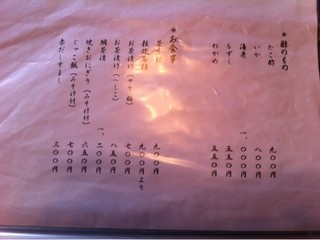 酢のもの
たこ酢 九〇〇円
いか 八〇〇円
海老 一、〇〇〇円
もずく 五五〇円
わかめ 五五〇円
お食事
茶そば 九〇〇円
雑炊各種 九〇〇円より
お茶漬け(サケ・梅) 七〇〇円
お茶漬け(へしこ) 八五〇円
鯛茶漬 一、二〇〇円
焼きおにぎり(みそ汁付) 六五〇円
じゃこ飯(みそ汁付) 七〇〇円
赤だしすまし 三〇〇円